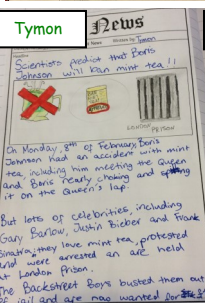 Tymon
News
News Written by Tymon
Scientists predict that Boris
Johnson will ban mint tea!!
LONDON PRISON
On Monday, 8th of February, Boris
Johnson had an accident with mint
tea, including him meeting the Queen
and Boris nearly choking and
it on the Queen's lap.
But lots of celebrities, including
Gary Barlow, Justin Bieber and Frank
Sinatra, they love mint tea, protested
and were arrested an are held
at London Prison.
The Backstreet Boys busted them out
of jail and are now wanted for